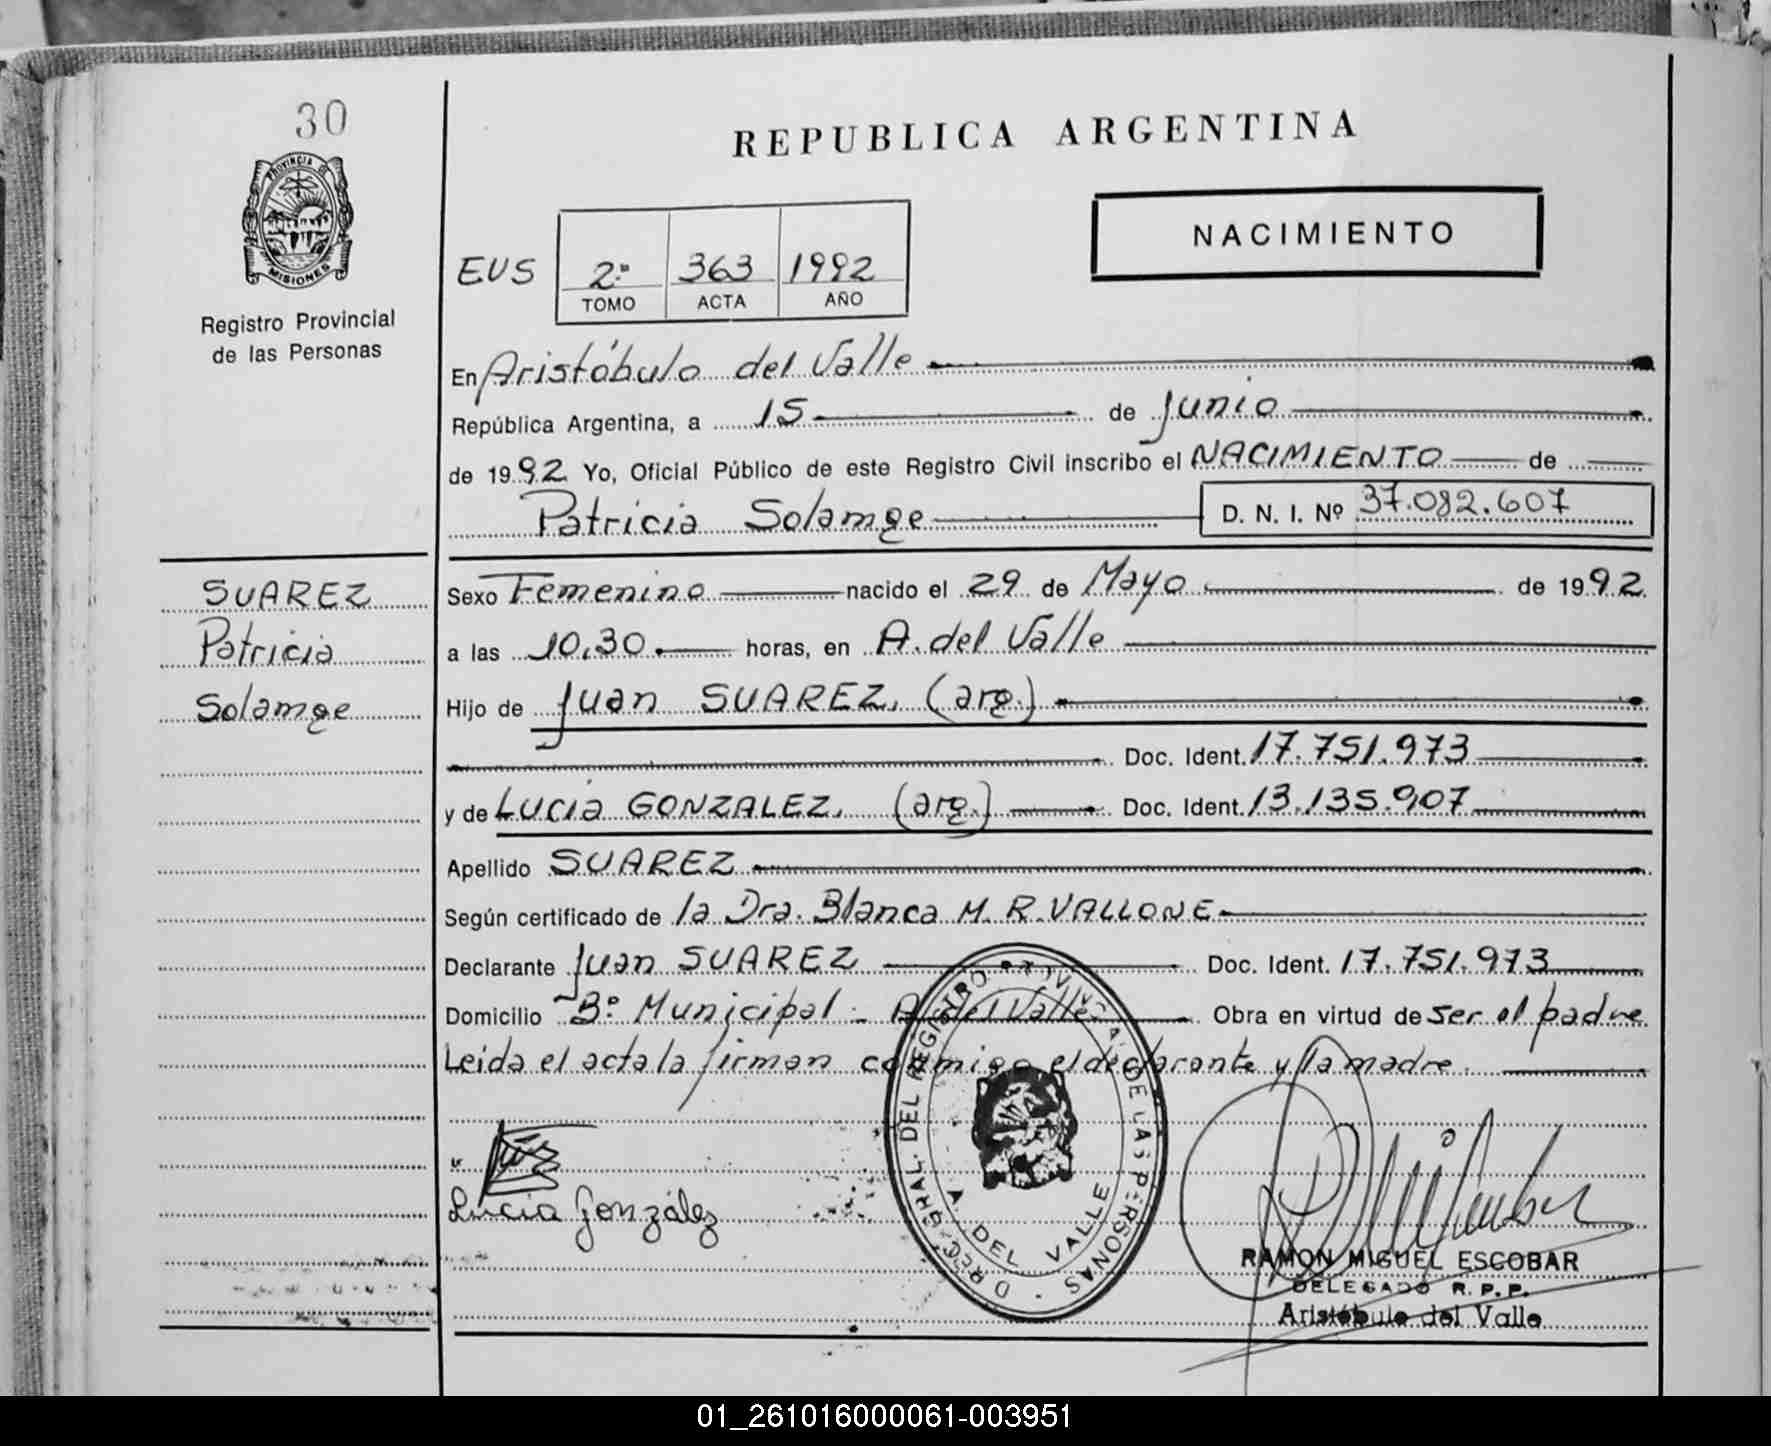 30
PROVINCIA DE
MISIONES
Registro Provincial
de las Personas
SUAREZ
Patricia
Solamge
REPUBLICA ARGENTINA
NACIMIENTO
EUS 2º 363 1992
TOMO ACTA AÑO
En Aristóbulo del Valle
República Argentina, a 15 de junio
de 1992 Yo, Oficial Público de este Registro Civil inscribo el NACIMIENTO de
Patricia Solamge D. N. I. Nº 37.082.607
Sexo Femenino nacido el 29 de Mayo de 1992
a las 10,30 horas, en A. del Valle
Hijo de Juan SUAREZ, (arg.)
Doc. Ident. 17.751.973
y de Lucia GONZALEZ, (arg.) Doc. Ident. 13.135.907
Apellido SUAREZ
Según certificado de la Dra. Blanca M. R. VALLONE
Declarante Juan SUAREZ Doc. Ident. 17.751.973
Domicilio Bº Municipal - A. del Valle Obra en virtud de ser el padre
Leida el acta la firman conmigo el declarante y la madre.
Lucia González
DIREC. GRAL. DEL REGISTRO PROVINCIAL DE LAS PERSONAS
A. DEL VALLE
RAMON MIGUEL ESCOBAR
DELEGADO R. P. P.
Aristóbulo del Valle
01_261016000061-003951